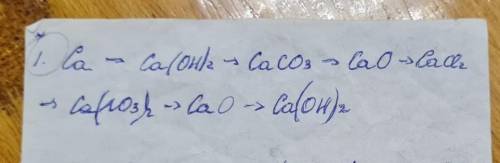 1. Ca → Ca(OH)2 → CaCO3 → CaO → CaCl2
→ Ca(NO3)2 → CaO → Ca(OH)2